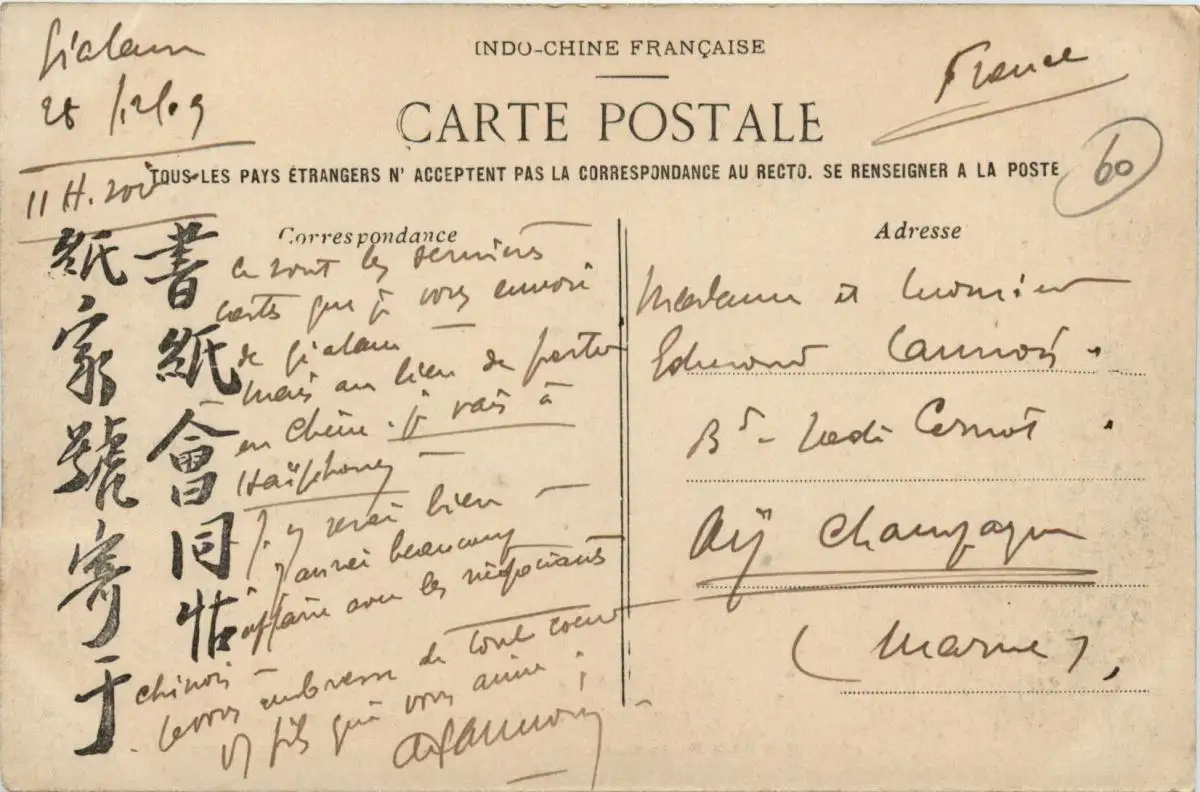 Gialam
28/12/09
11 H. soir
INDO-CHINE FRANÇAISE
CARTE POSTALE
France
60
TOUS LES PAYS ÉTRANGERS N' ACCEPTENT PAS LA CORRESPONDANCE AU RECTO. SE RENSEIGNER A LA POSTE
Correspondance
書紙會同
紙家號寄于
Ce sont les dernières
cartes que je vous envoie
de Gialam
mais au lieu de partir
en Chine. je vais à
Haïphong
J'y serai bien
j'aurai beaucoup
affaire avec les négociants
chinois
Je vous embrasse de tout coeur
Vo fils qui vous aime
Adresse
Madame et Monsieur
Edmond
Bd - Sadi Carnot
Aÿ Champagne
(Marne),